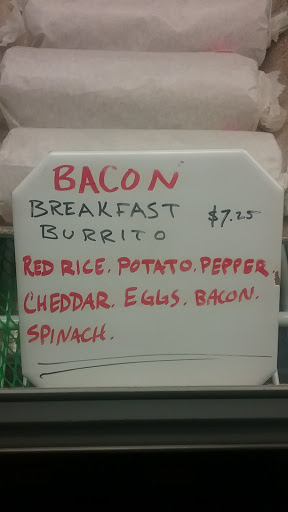 BACON
BREAKFAST $7.25
BURRITO
RED RICE. POTATO. PEPPER.
CHEDDAR. EGGS. BACON.
SPINACH.